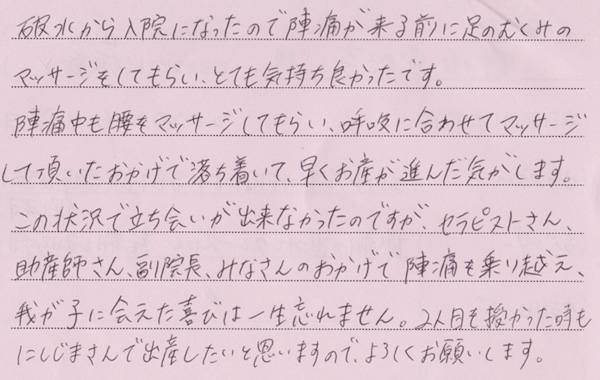 破水から入院になったので陣痛が来る前に足のむくみの
マッサージをしてもらい、とても気持ち良かったです。
陣痛中も腰をマッサージしてもらい、呼吸に合わせてマッサージ
して頂いたおかげで落ち着いて、早くお産が進んだ気がします。
この状況で立ち会いが出来なかったのですが、セラピストさん、
助産師さん、副院長、みなさんのおかげで陣痛を乗り越え、
我が子に会えた喜びは一生忘れません。2人目を授かった時も
にしじまさんで出産したいと思いますので、よろしくお願いします。